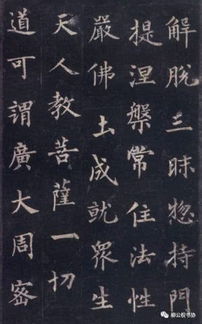 解脱三昧惣持門
提涅槃常住法性
嚴佛土成就眾生
天人教菩薩一切
道可謂廣大周密
柳公权书协